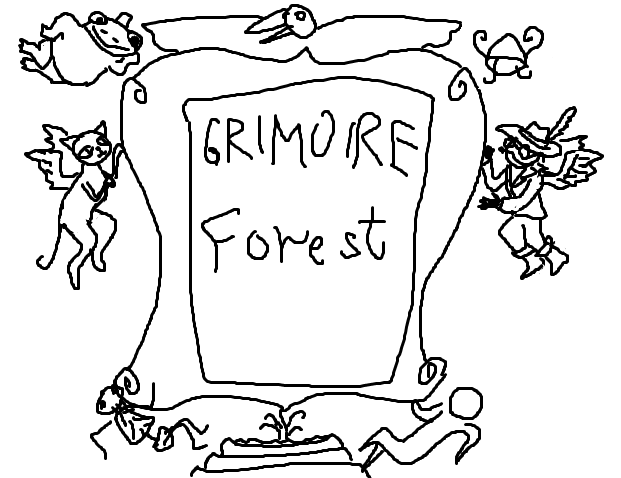 GRIMOIRE
Forest